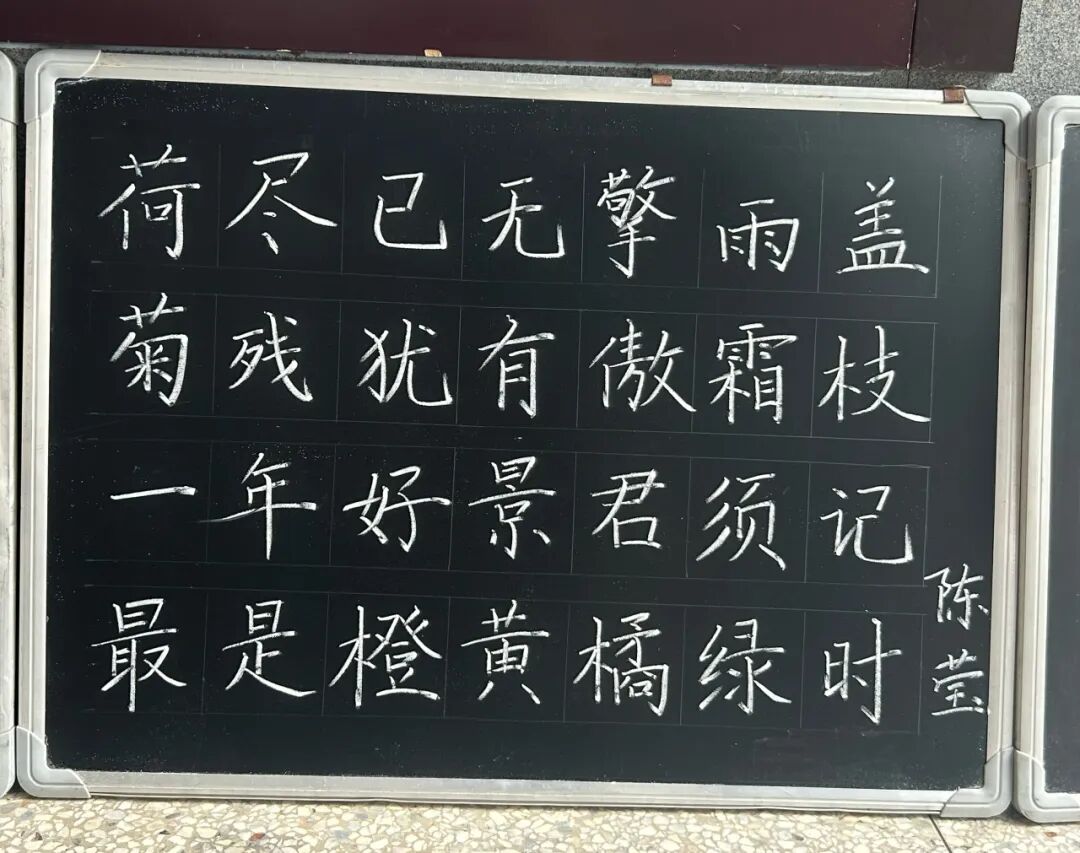 荷尽已无擎雨盖
菊残犹有傲霜枝
一年好景君须记
最是橙黄橘绿时
陈莹